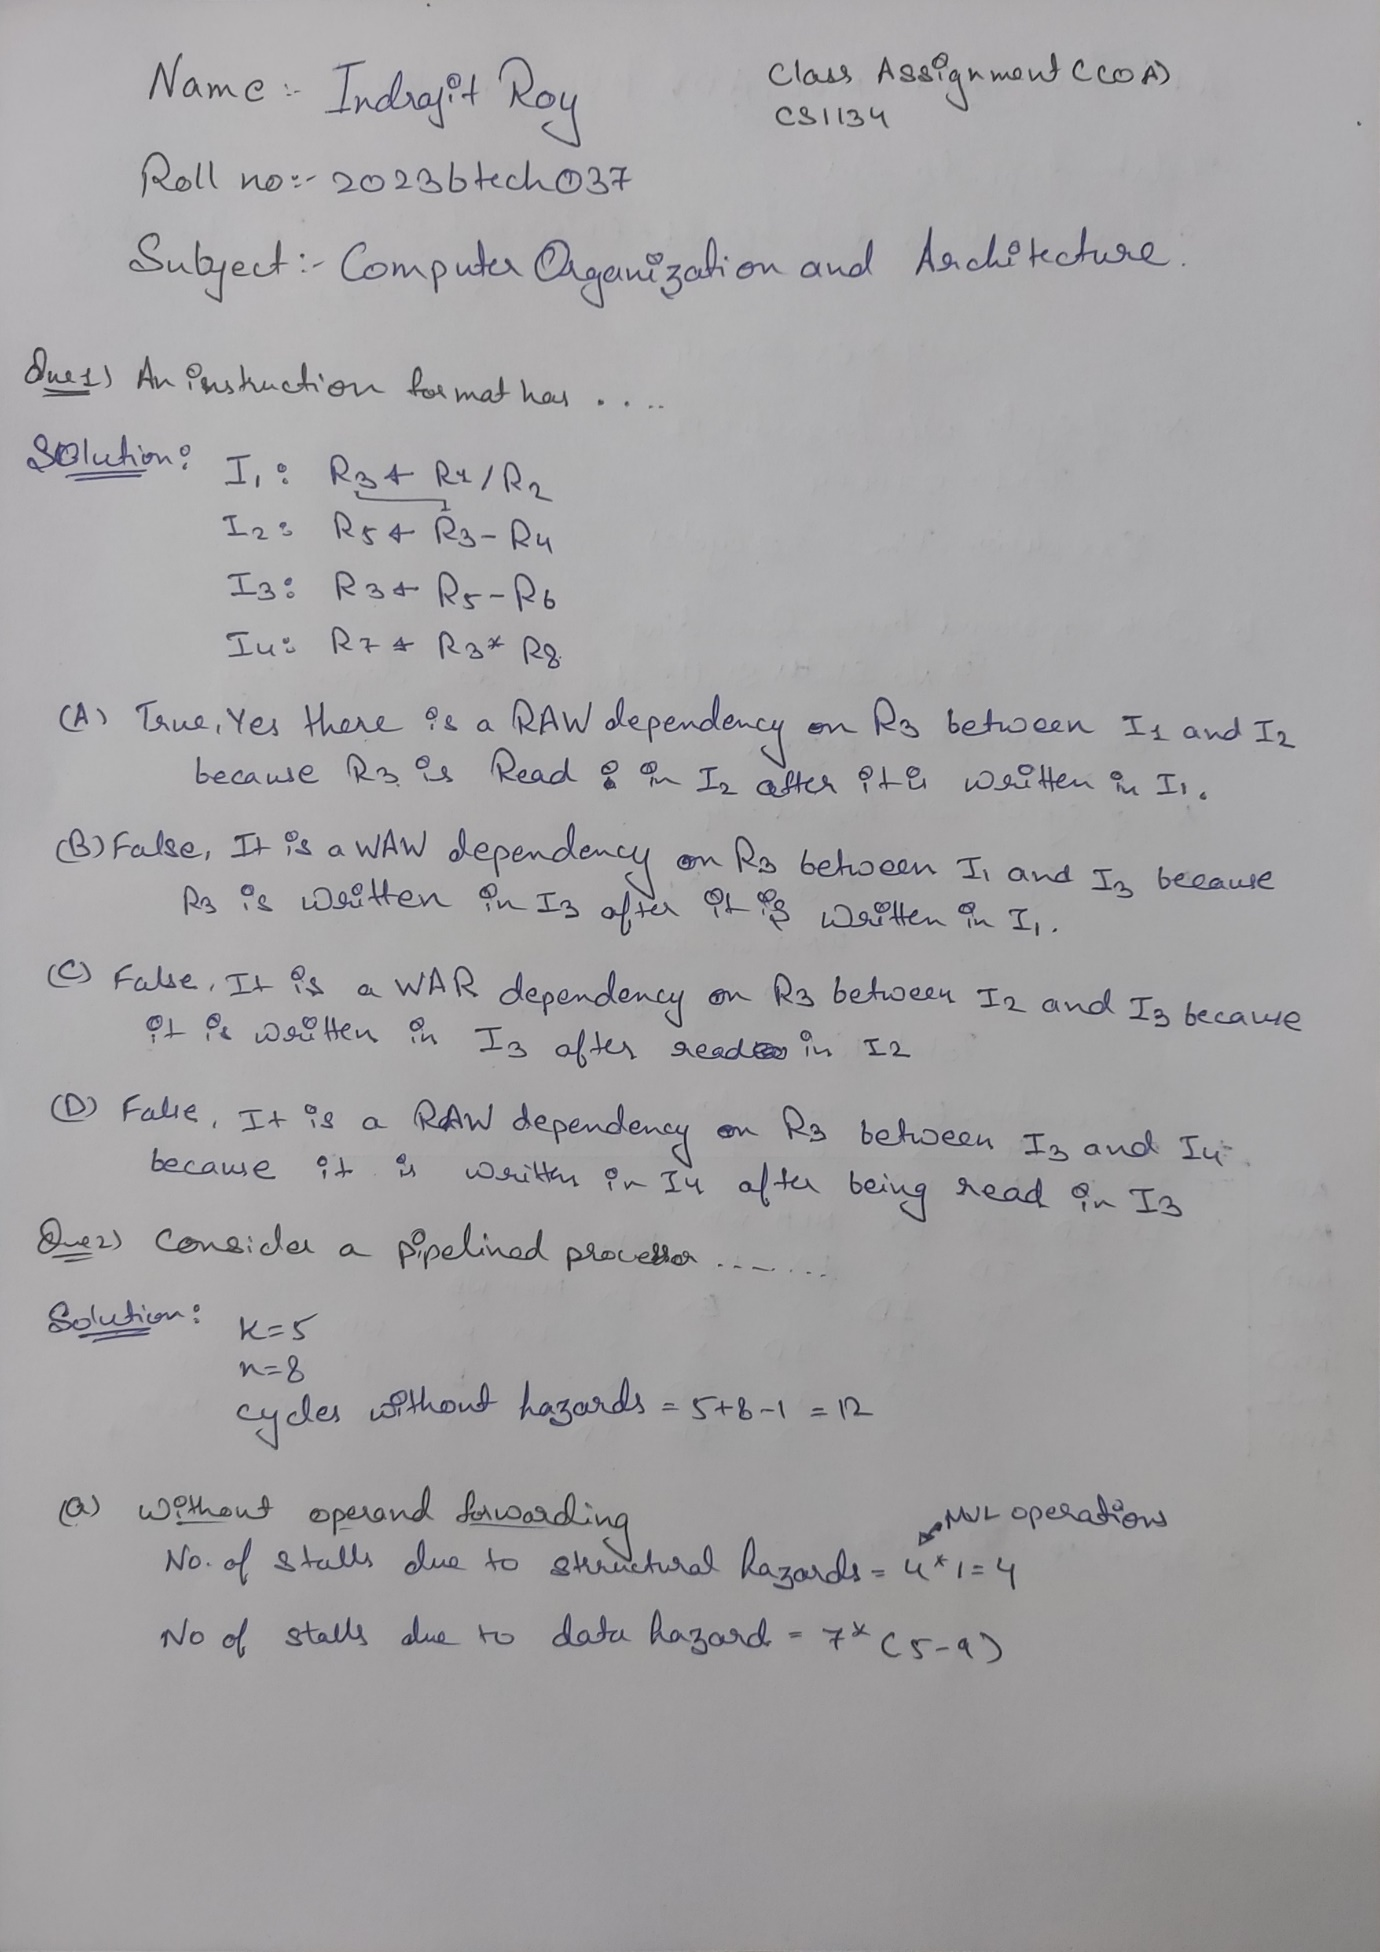 Name :- Indrajit Roy
Class Assignment (COA)
CS1134
Roll no:- 2023btech037
Subject:- Computer Organization and Architecture.
Que1) An instruction format has .....
Solution:
I1: R3 ← R1/R2
I2: R5 ← R3-R4
I3: R3 ← R5-R6
I4: R7 ← R3* R8
(A) True, Yes there is a RAW dependency on R3 between I1 and I2
because R3 is Read in I2 after it is written in I1.
(B) False, It is a WAW dependency on R3 between I1 and I3 because
R3 is written in I3 after it is written in I1.
(C) False, It is a WAR dependency on R3 between I2 and I3 because
it is written in I3 after read in I2
(D) False, It is a RAW dependency on R3 between I3 and I4
because it is written in I4 after being read in I3
Que2) Consider a pipelined processor .......
Solution:
K=5
n=8
cycles without hazards = 5+8-1 = 12
(a) without operand forwarding
MUL operations
No. of stalls due to structural hazards = 4*1=4
No of stalls due to data hazard = 7* (5-9)